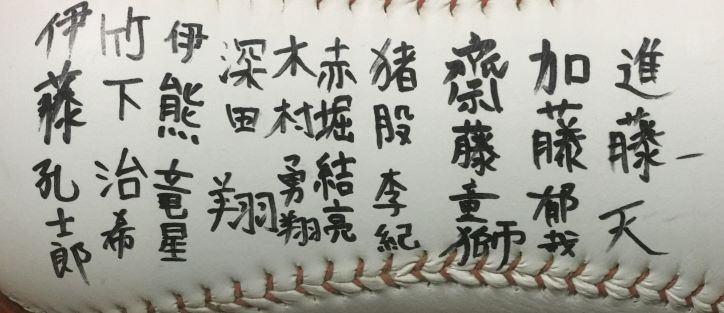 進藤 天
加藤 郁我
齋藤 童獅
猪股 李紀
赤堀 結亮
木村 勇翔
深田 翔
伊熊 竜星
竹下 治希
伊藤 孔士郎